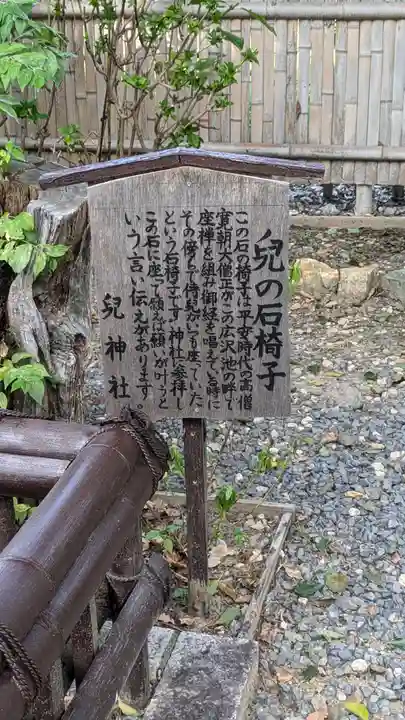 兒の石椅子
この石の椅子は平安時代の高僧
寛朝大僧正がこの広沢池の畔で
座禅を組み御経を唱えてる時に
その傍らで侍児がいつも座っていた
という石椅子です。神社へ参拝し
この石に座って願えば願いが叶うと
いう言い伝えがあります。
兒神社